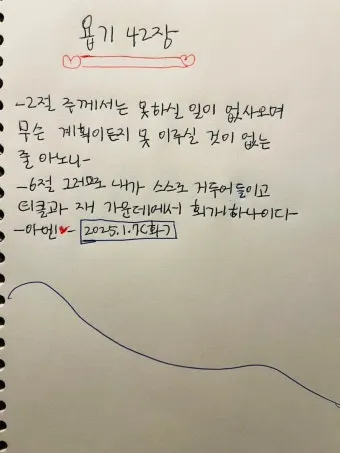 욥기 42장
-2절 주께서는 못하실 일이 없사오며
무슨 계획이든지 못 이루실 것이 없는
줄 아노니-
-6절 그러므로 내가 스스로 거두어들이고
티끌과 재 가운데에서 회개하나이다-
-아멘♥- 2025.1.7(화)